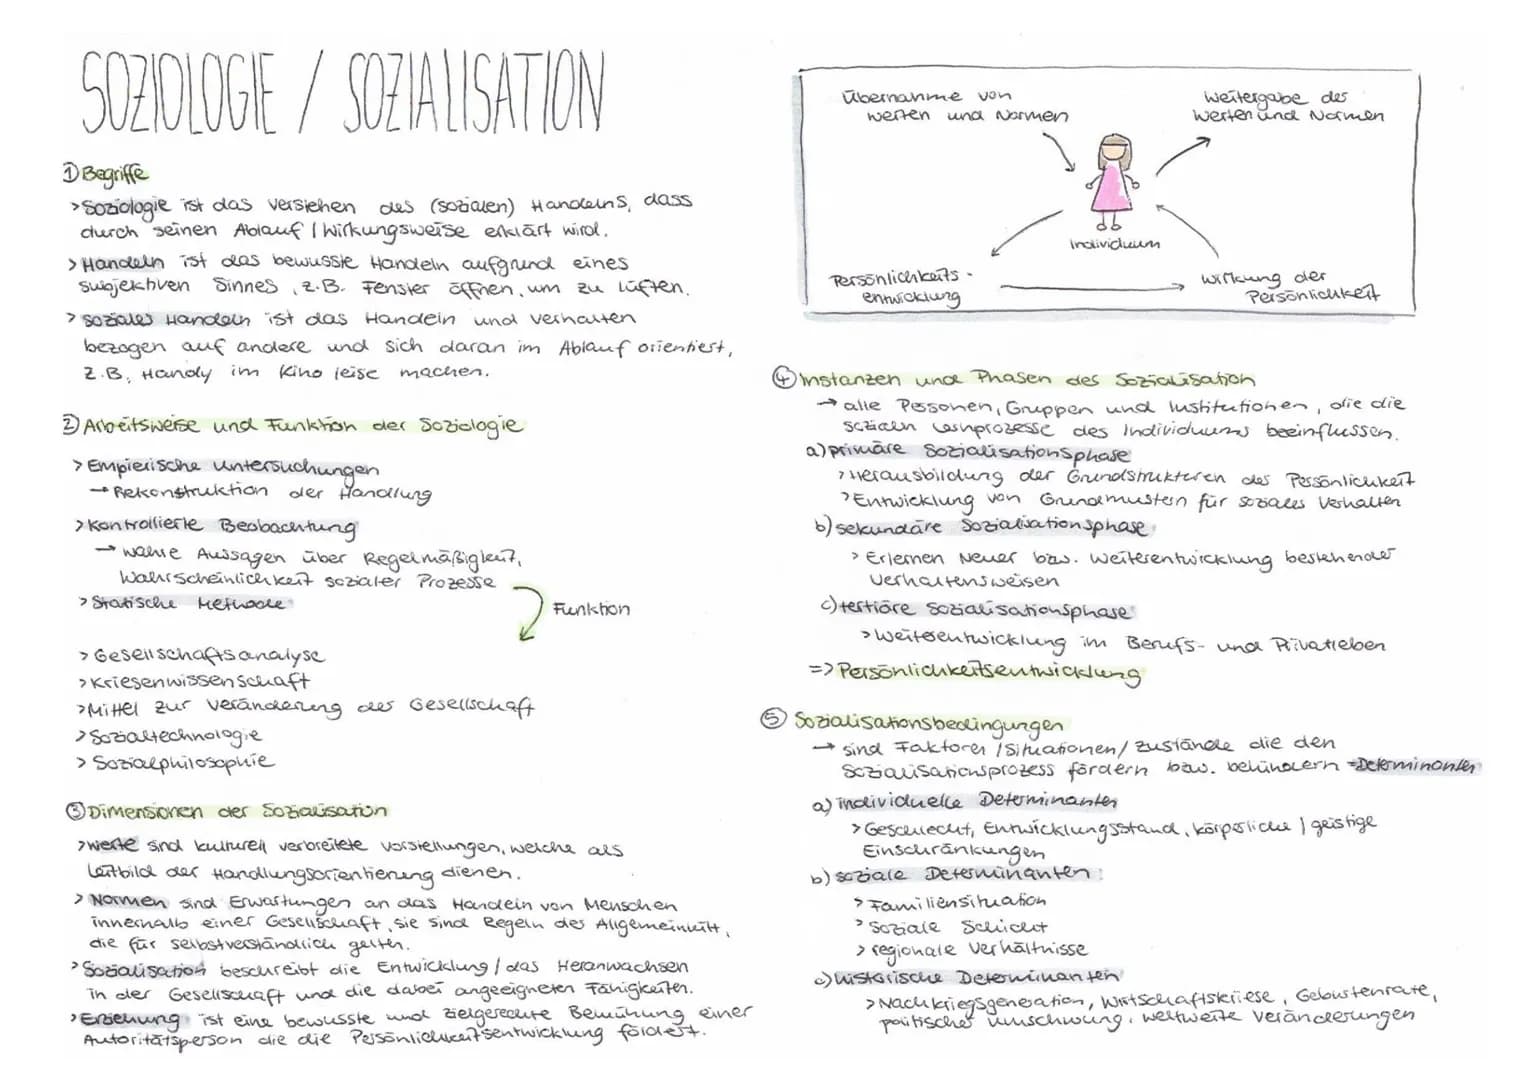 SOZIOLOGIE / SOZIALISATION
① Begriffe
> Soziologie ist das Verstehen des (sozialen) Handelns, dass
durch seinen Ablauf / Wirkungsweise erklärt wird.
> Handeln ist das bewusste Handeln aufgrund eines
subjektiven Sinnes, z.B. Fenster öffnen, um zu lüften.
> soziales Handeln ist das Handeln und Verhalten
bezogen auf andere und sich daran im Ablauf orientiert,
z.B. Handy im Kino leise machen.
② Arbeitsweise und Funktion der Soziologie
> Empierische Untersuchungen
→ Rekonstruktion der Handlung
> Kontrollierte Beobachtung
→ wahre Aussagen über Regelmäßigkeit,
Wahrscheinlichkeit sozialer Prozesse
> Statische Methode
Funktion
> Gesellschaftsanalyse
> Kriesenwissenschaft
> Mittel zur Veränderung der Gesellschaft
> Sozialtechnologie
> Sozialphilosophie
③ Dimensionen der Sozialisation
> Werte sind kulturell verbreitete Vorstellungen, welche als
Leitbild der Handlungsorientierung dienen.
> Normen sind Erwartungen an das Handeln von Menschen
innerhalb einer Gesellschaft, sie sind Regeln des Allgemeinheit,
die für selbstverständlich gelten.
> Sozialisation beschreibt die Entwicklung / das Heranwachsen
in der Gesellschaft und die dabei angeeigneten Fähigkeiten.
> Erziehung ist eine bewusste und zielgerechte Bemühung einer
Autoritätsperson die die Persönlichkeitsentwicklung fördert.
Übernahme von
Werten und Normen
Weitergabe des
Werten und Normen
Individuum
Persönlichkeits-
entwicklung
Wirkung der
Persönlichkeit
④ Instanzen und Phasen des Sozialisation
→ alle Personen, Gruppen und Institutionen, die die
sozialen Lernprozesse des Individuums beeinflussen.
a) primäre Sozialisationsphase
> Herausbildung der Grundstrukturen des Persönlichkeit
> Entwicklung von Grundmustern für soziales Verhalten
b) sekundäre Sozialisationsphase
> Erlernen Neuer bzw. Weiterentwicklung bestehender
Verhaltensweisen
c) tertiäre Sozialisationsphase
> Weiterentwicklung im Berufs- und Privatleben
=> Persönlichkeitsentwicklung
⑤ Sozialisationsbedingungen
→ sind Faktoren / Situationen / Zustände die den
Sozialisationsprozess fördern bzw. behindern = Determinanten
a) individuelle Determinanten
> Geschlecht, Entwicklungsstand, körperliche / geistige
Einschränkungen
b) soziale Determinanten:
> Familiensituation
> Soziale Schicht
> regionale Verhältnisse
c) historische Determinanten
> Nachkriegsgeneration, Wirtschaftskriese, Geburtenrate,
politischer Umschwung, weltweite Veränderungen